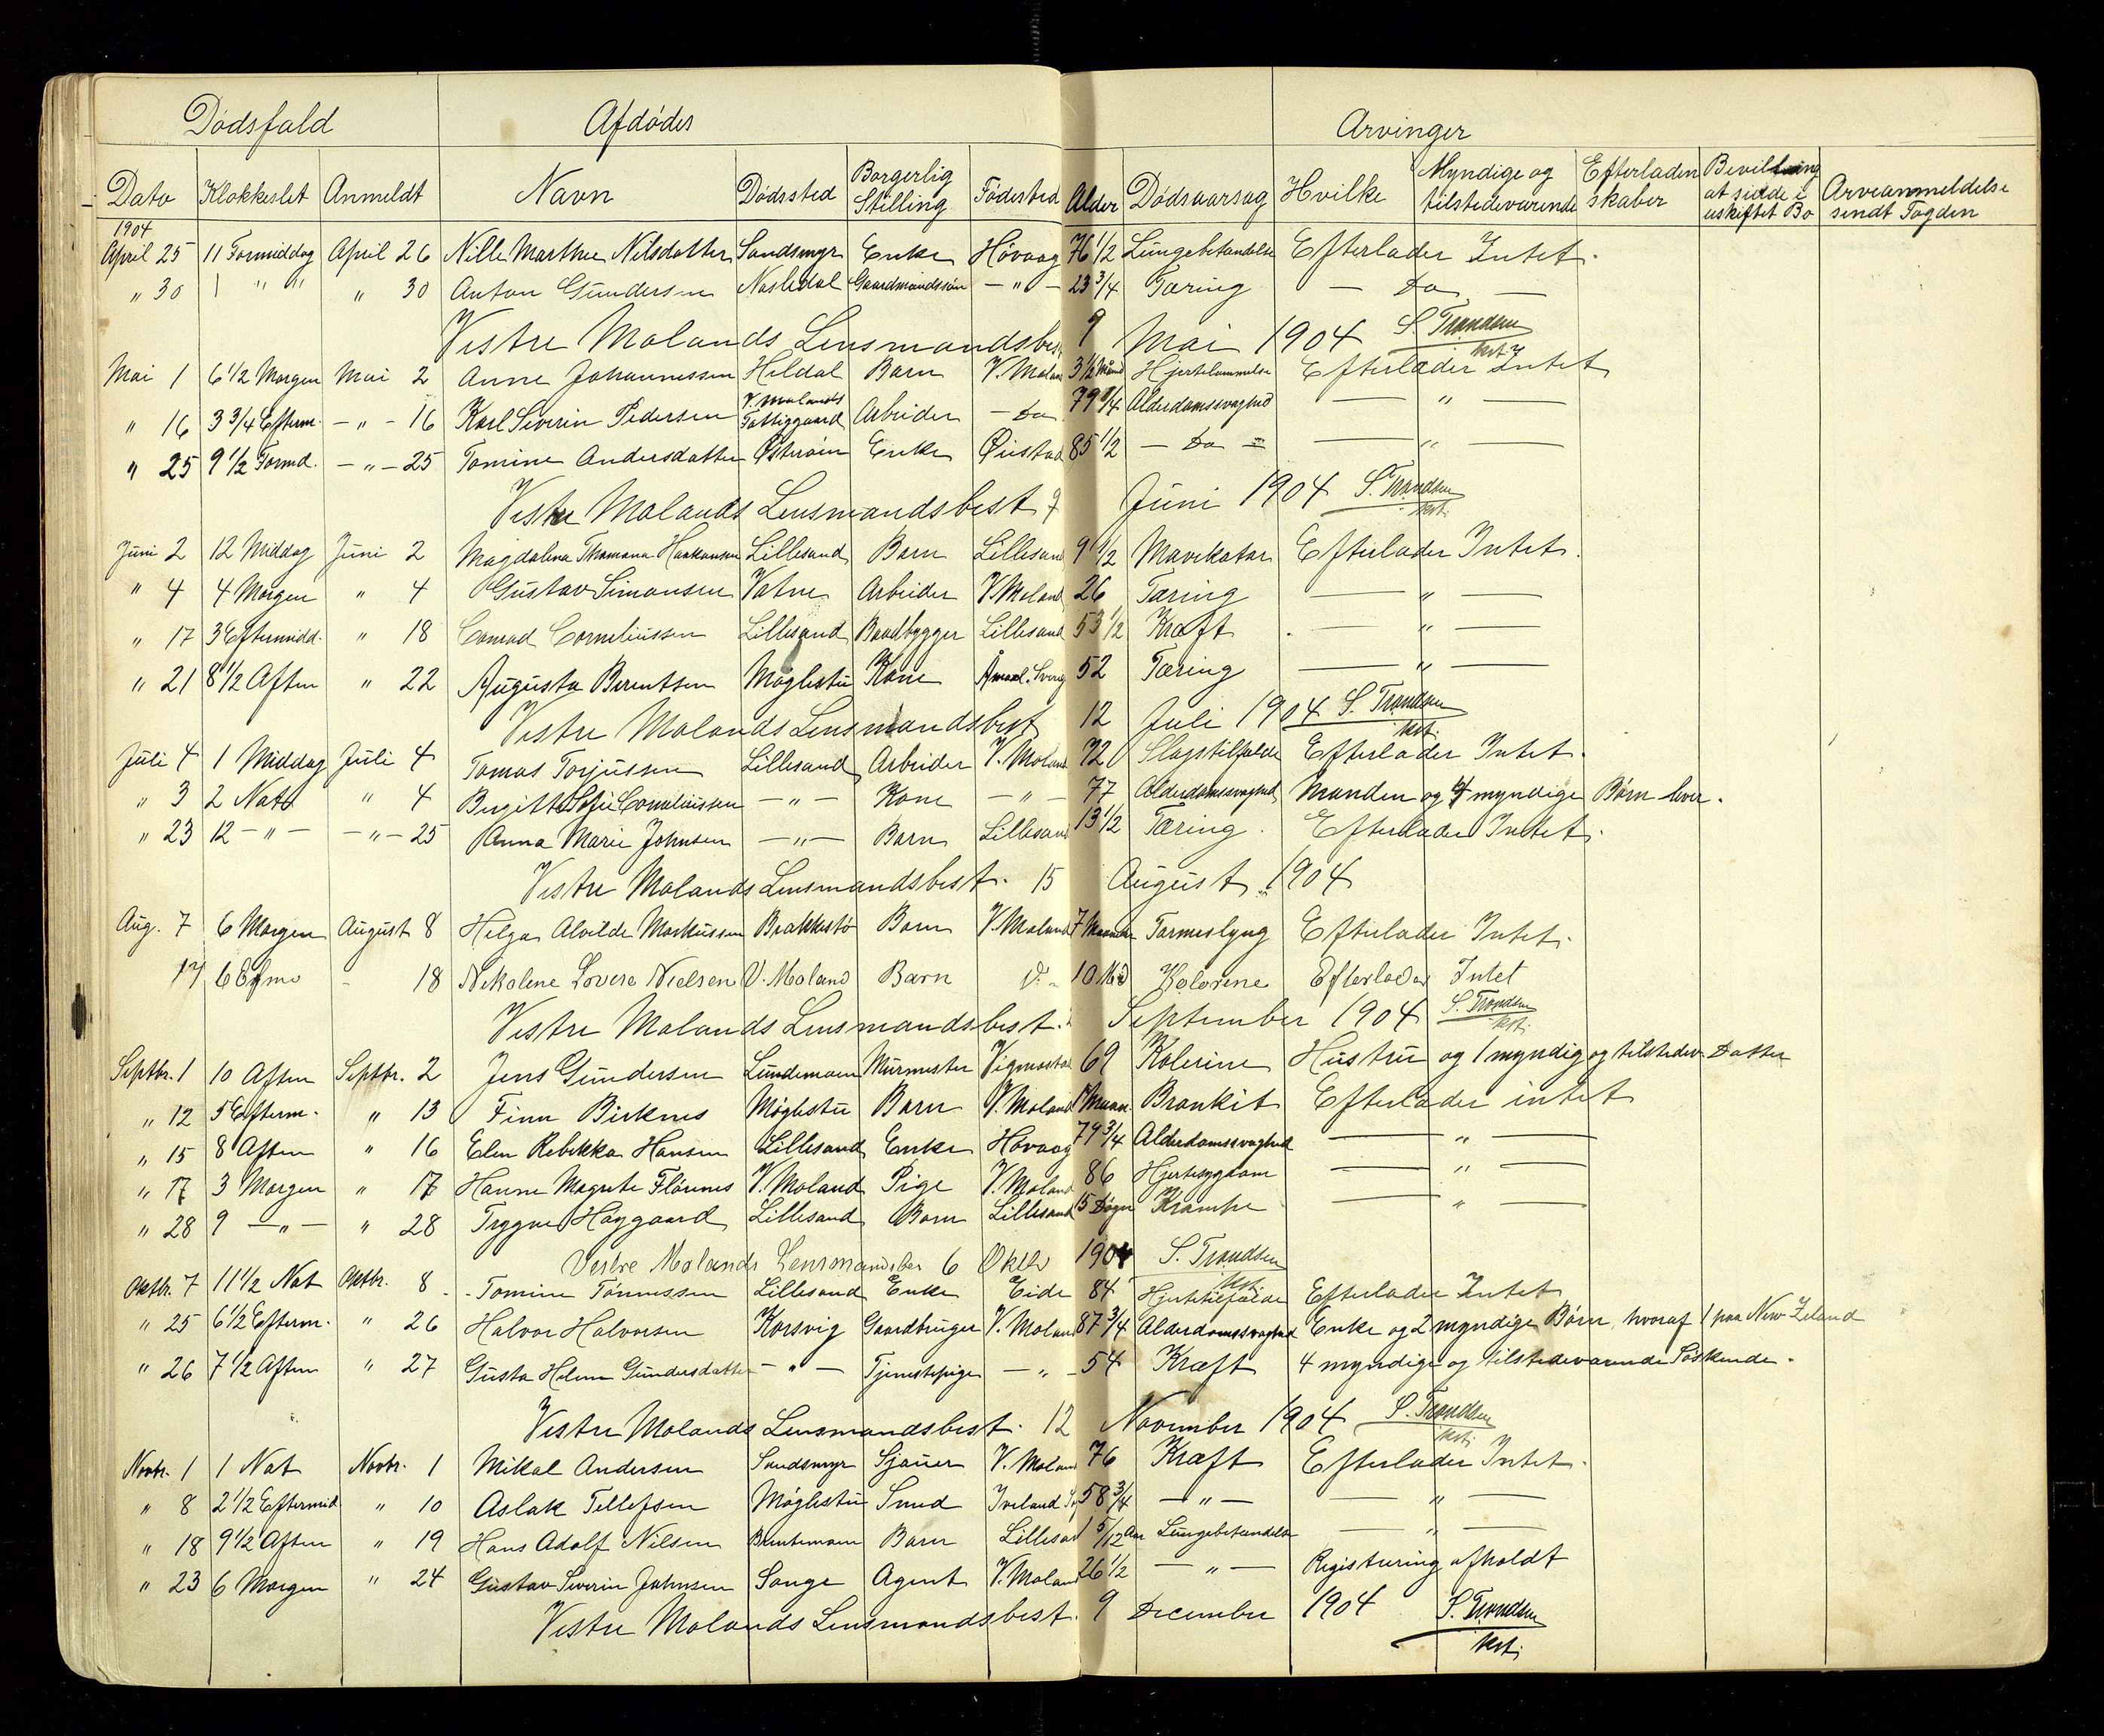 Dødsfald Afdødes Arvinger
Dato Klokkeslet Anmeldt Navn Dødssted Borgerlig Stilling Fødested Alder Dødsaarsag Hvilke Myndige og tilstedeværende Efterladenskaber Bevilling at sidde i uskiftet Bo Arveanmeldelse sendt Fogden
1904
April 25 11 Formiddag April 26 Nille Marthee Nilsdatter Sandsmyr Enke Høvaag 76 1/2 Lungebetændelse Efterlader Intet.
" 30 1 " " " 30 Anton Gundersen Gaardmandssøn — " — 23 3/4 Tæring — Do —
Vestre Molands Lensmandsbest 9 Mai 1904 S. Trondsen kst.
Mai 1 6 1/2 Morgen Mai 2 Anne Johannessen Heldal Barn V. Moland 3 1/2 Hjertelammelse Efterlader Intet
" 16 3 3/4 Efterm. — " — 16 Karl Severin Pedersen V. Molands Fattiggaard Arbeider — Do 79 Alderdomssvaghed — " —
" 25 9 1/2 Formd. — " — 25 Tomine Andersdatter Østerøen Enke Øiestad 85 1/2 — Do — — " —
Vestre Molands Lensmandsbest 9 Juni 1904 S. Trondsen kst.
Juni 2 12 Middag Juni 2 Magdalena Thomana Haakonsen Lillesand Barn Lillesand 9 1/2 Mavekatar Efterlader Intet.
" 4 4 Morgen " 4 Gustav Simonsen Vatne Arbeider V. Moland 26 Tæring — " —
" 17 3 Eftermidd. " 18 Conrad Corneliussen Lillesand Baadbygger Lillesand 53 1/2 Kræft — " —
" 21 8 1/2 Aften " 22 Augusta Berentsen Møglestu Kone Åmaal. Sverig 52 Tæring — " —
Vestre Molands Lensmandsbest 12 Juli 1904 S. Trondsen kst.
Juli 4 1 Middag Juli 4 Tomas Torjussen Lillesand Arbeider V. Moland 72 Slagstilfælde Efterlader Intet.
" 3 2 Nat " 4 Birgitte Sofie Corneliussen — " — Kone — " — 77 Alderdomssvaghed Manden og 4 myndige Børn lever.
" 23 12 — " — — " — 25 Anna Marie Johnsen — " — Barn Lillesand 13 1/2 Tæring. Efterlader Intet.
Vestre Molands Lensmandsbest. 15 August 1904
Aug. 7 6 Morgen August 8 Helga Alvilde Markussen Brækkestø Barn V. Moland 7 Maaneder Tarmeslyng Efterlader Intet.
17 6 Efmd 18 Nikolene Lovise Nielsen V. Moland Barn 10 Md Kolerine Efterlader Intet
Vestre Molands Lensmandsbest. September 1904 S. Trondsen kst.
Septbr. 1 10 Aften Septbr. 2 Jens Gundersen Lundemoen Murmester Vigmostad 69 Kolerine Hustru og 1 myndig og tilstedev. Datter
" 12 5 Efterm. " 13 Finn Birknes Møglestu Barn V. Moland Maan. Bronkit Efterlader intet
" 15 8 Aften " 16 Elen Rebekka Hansen Lillesand Enke Høvaag 79 3/4 Alderdomssvaghed — " —
" 17 3 Morgen " 17 Hanne Magrete Flørenes V. Moland Pige V. Moland 86 Hjertesygdom — " —
" 28 9 — " — " 28 Trygve Haygaard Lillesand Barn Lillesand 15 Døgn Krampe — " —
Vestre Molands Lensmandsbes 6 Oktb 1904 S. Trondsen kst.
Oktbr. 7 11 1/2 Nat Oktbr. 8 Tomine Tønnessen Lillesand Enke Eide 84 Hjertetilfælde Efterlader Intet
" 25 6 1/2 Efterm. " 26 Halvor Halvorsen Korsvig Gaardbruger V. Moland 87 3/4 Alderdomssvaghed Enke og 2 myndige Børn, hvoraf 1 paa New Zeland
" 26 7 1/2 Aften " 27 Gusta Helene Gundersdatter — " — Tjenestepige — " — 54 Kræft 4 myndige og tilstedeværende Søskende.
Vestre Molands Lensmandsbest. 12 November 1904 S. Trondsen kst.
Novbr. 1 1 Nat Novbr. 1 Mikal Andersen Sandsmyr Sjauer V. Moland 76 Kræft Efterlader Intet.
" 8 2 1/2 Eftermid " 10 Aslak Tellefsen Møglestu Smed Iveland 58 3/4 — " — — " —
" 18 9 1/2 Aften " 19 Hans Adolf Nilsen Brentemoen Barn Lillesand 1 5/12 Aar Lungebetændelse — " —
" 23 6 Morgen " 24 Gustav Severin Johnsen Songe Agent V. Moland 26 1/2 — " — Registrering afholdt
Vestre Molands Lensmandsbest. 9 December 1904 S. Trondsen kst.